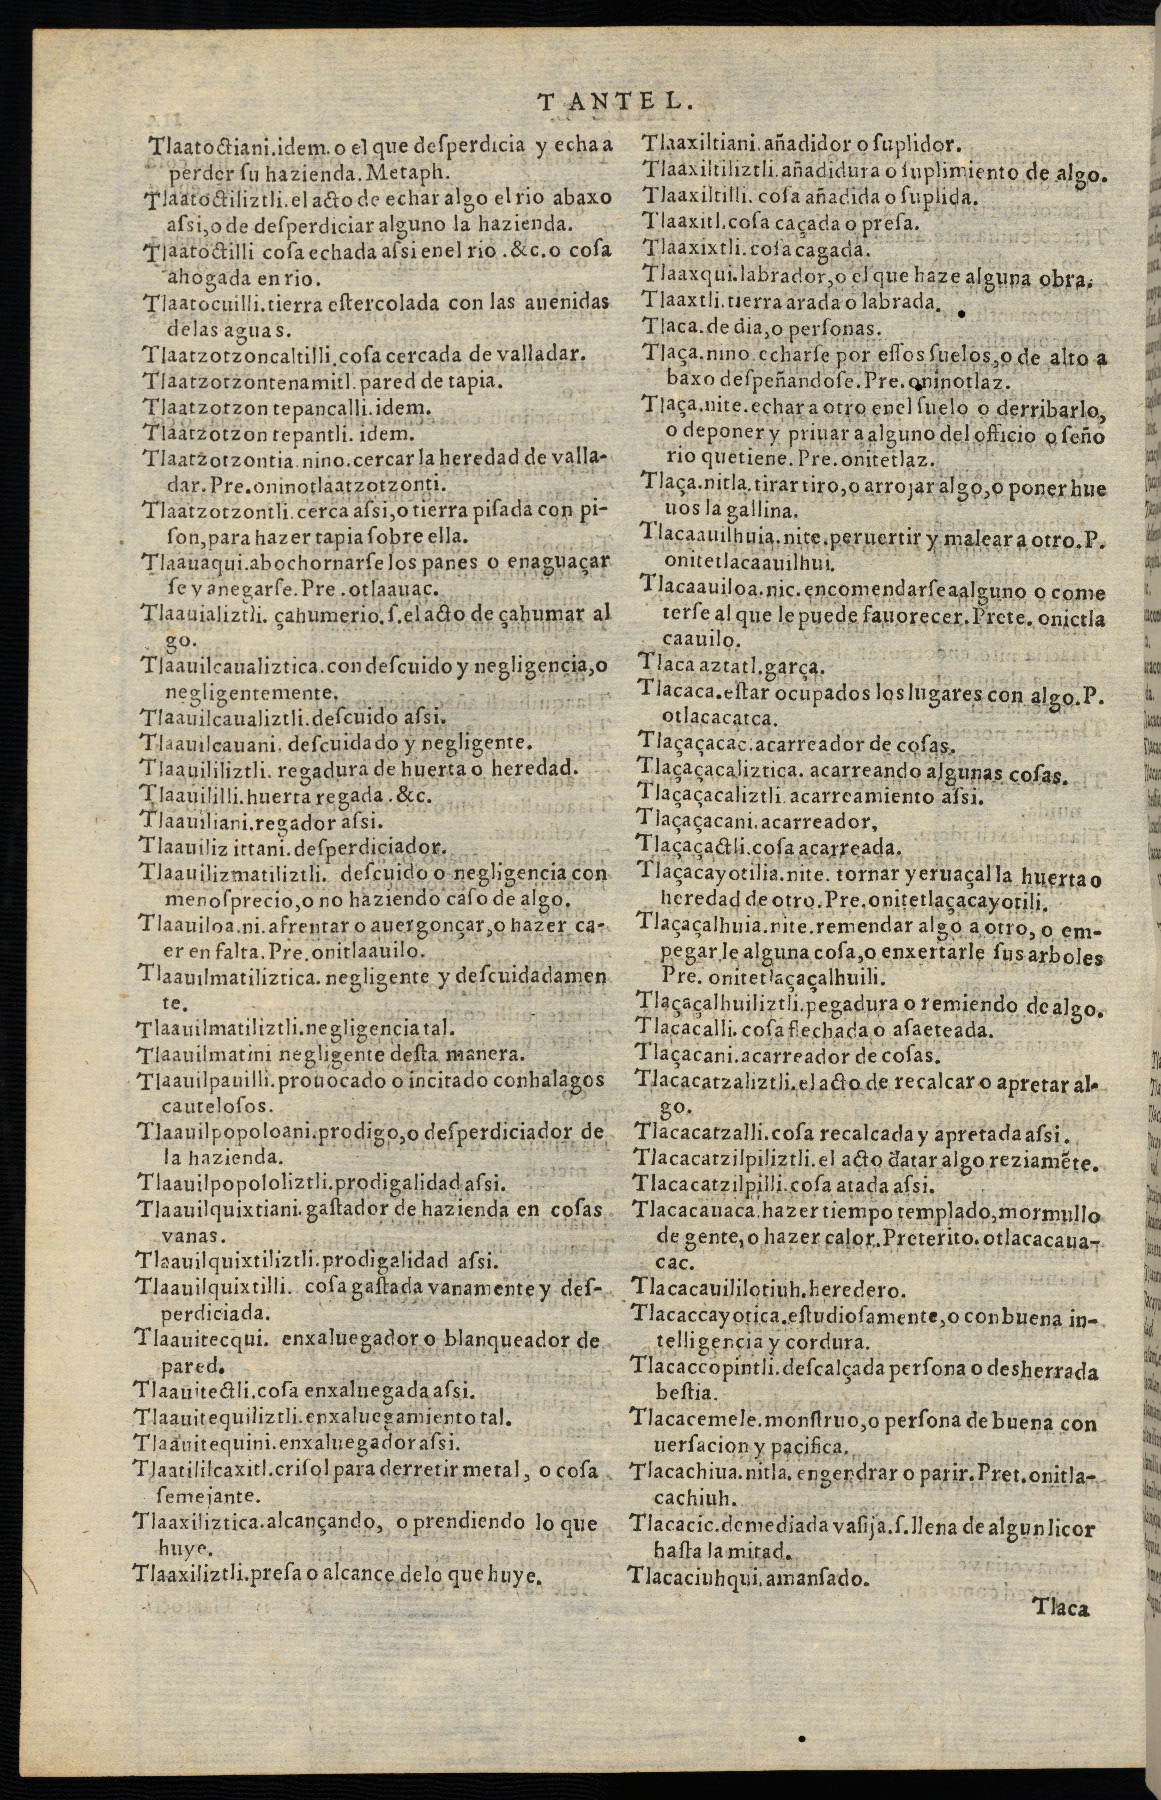 T ANTE L.
Tlaatoctiani.idem.o el que deſperdicia y echa a
perder ſu hazienda.Metaph.
Tlaatoctiliztli.el acto de echar algo el rio abaxo
aſsi,o de deſperdiciar alguno la hazienda.
Tlaatoctilli coſa echada aſsi enel rio .&c.o coſa
ahogada en rio.
Tlaatocuilli.tierra eſtercolada con las auenidas
delas aguas.
Tlaatzotzoncaltilli.coſa cercada de valladar.
Tlaatzotzontenamitl.pared de tapia.
Tlaatzotzon tepancalli.idem.
Tlaatzotzon tepantli. idem.
Tlaatzotzontia.nino.cercar la heredad de valla-
dar.Pre.oninotlaatzotzonti.
Tlaatzotzontli.cerca aſsi,o tierra piſada con pi-
ſon,para hazer tapia ſobre ella.
Tlaauaqui.abochornarſe los panes o enaguaçar
ſe y anegarſe.Pre .otlaauac.
Tlaauializtli. çahumerio.ſ.el acto de çahumar al
go.
Tlaauilcaualiztica.con deſcuido y negligencia,o
negligentemente.
Tlaauilcaualiztli.deſcuido aſsi.
Tlaauilcauani. deſcuidado y negligente.
Tlaauililiztli. regadura de huerta o heredad.
Tlaauililli.huerta regada .&c.
Tlaauiliani.regador aſsi.
Tlaauiliz ittani.deſperdiciador.
Tlaauilizmatiliztli. deſcuido o negligencia con
menoſprecio,o no haziendo caſo de algo.
Tlaauiloa.ni.afrentar o auergonçar,o hazer ca-
er en falta.Pre.onitlaauilo.
Tlaauilmatiliztica.negligente y deſcuidadamen
te.
Tlaauilmatiliztli.negligencia tal.
Tlaauilmatini negligente deſta manera.
Tlaauilpauilli.prouocado o incitado con halagos
cauteloſos.
Tlaauilpopoloani.prodigo,o deſperdiciador de
la hazienda.
Tlaauilpopololiztli.prodigalidad aſsi.
Tlaauilquixtiani.gaſtador de hazienda en coſas
vanas.
Tlaauilquixtiliztli.prodigalidad aſsi.
Tlaauilquixtilli. coſa gaſtada vanamente y deſ-
perdiciada.
Tlaauitecqui. enxaluegador o blanqueador de
pared.
Tlaauitectli.coſa enxaluegada aſsi.
Tlaauitequiliztli.enxaluegamiento tal.
Tlaauitequini.enxaluegador aſsi.
Tlaatililcaxitl.criſol para derretir metal, o coſa
ſemejante.
Tlaaxiliztica.alcançando, o prendiendo lo que
huye.
Tlaaxiliztli.preſa o alcance delo que huye.
Tlaaxiltiani.añadidor o ſuplidor.
Tlaaxiltiliztli.añadidura o ſuplimiento de algo.
Tlaaxiltilli. coſa añadida o ſuplida.
Tlaaxitl.coſa caçada o preſa.
Tlaaxixtli.coſa cagada.
Tlaaxqui.labrador,o el que haze alguna obra.
Tlaaxtli.tierra arada o labrada.
Tlaca.de dia,o perſonas.
Tlaça.nino.echarſe por eſſos ſuelos,o de alto a
baxo deſpeñandoſe.Pre.oninotlaz.
Tlaça.nite.echar a otro enel ſuelo o derribarlo,
o deponer y priuar a alguno del officio o ſeño
rio que tiene.Pre.onitetlaz.
Tlaça.nitla.tirar tiro,o arrojar algo,o poner hue
uos la gallina.
Tlacaauilhuia.nite.peruertir y malear a otro.P.
onitetlacaauilhui.
Tlacaauiloa.nic.encomendarſe a alguno o come
terſe al que le puede fauorecer.Prete. onictla
caauilo.
Tlaca aztatl.garça.
Tlacaca.eſtar ocupados los lugares con algo.P.
otlacacatca.
Tlaçaçacac.acarreador de coſas.
Tlaçaçacaliztica. acarreando algunas coſas.
Tlaçaçacaliztli.acarreamiento aſsi.
Tlaçaçacani.acarreador,
Tlaçaçactli.coſa acarreada.
Tlaçacayotilia.nite. tornar yeruaçal la huerta o
heredad de otro.Pre.onitetlaçacayotili.
Tlaçaçalhuia.nite.remendar algo a otro, o em-
pegar le alguna coſa,o enxertarle ſus arboles
Pre. onitetlaçaçalhuili.
Tlaçaçalhuiliztli.pegadura o remiendo de algo.
Tlacacalli.coſa flechada o aſaeteada.
Tlaçacani.acarreador de coſas.
Tlacacatzaliztli.el acto de recalcar o apretar al-
go.
Tlacacatzalli.coſa recalcada y apretada aſsi.
Tlacacatzilpiliztli.el acto d̄atar algo reziamēte.
Tlacacatzilpilli.coſa atada aſsi.
Tlacacauaca.hazer tiempo templado,mormullo
de gente,o hazer calor.Preterito.otlacacaua-
cac.
Tlacacauililotiuh.heredero.
Tlacaccayotica.eſtudioſamente,o con buena in-
telligencia y cordura.
Tlacaccopintli.deſcalçada perſona o desherrada
beſtia.
Tlacacemele.monſtruo,o perſona de buena con
uerſacion y pacifica.
Tlacachiua.nitla.engendrar o parir.Pret.onitla-
cachiuh.
Tlacacic.demediada vaſija.ſ.llena de algun licor
haſta la mitad.
Tlacaciuhqui.amanſado.
Tlaca